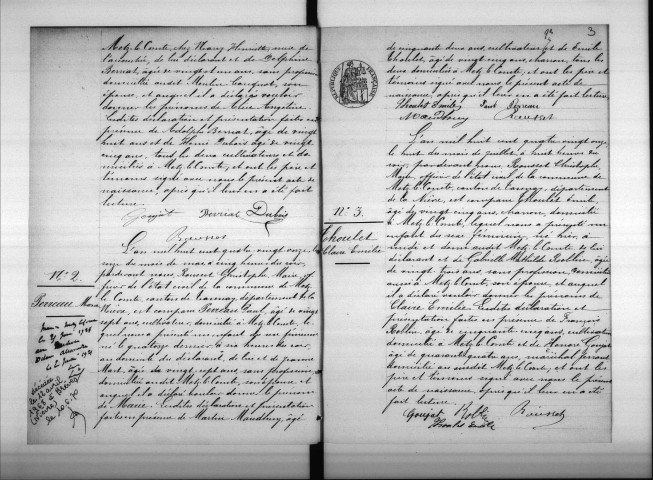 Metz le Comte, chez Henry Henriette, rue de
du déclarant et de Delphine
Berriat, âgée de vingt et un ans, sans profession
domiciliée audit son
épouse, et auquel il a déclaré vouloir
donner les prénoms de Angeline
Lesdites déclaration et présentation faites en
présence de Adolphe Berriat, âgé de vingt
huit ans et de Henri Dubois âgé de vingt
cinq ans, tous les deux cultivateurs et do-
miciliés à Metz le Comte, et ont les père et
témoins signé avec nous le présent acte
de naissance, après qu'il leur en a été fait
lecture.
Goujat Berriat Dubois
Rousset
N° 2.
Perreau Marie
L'an mil huit cent quatre vingt onze le
du mois de mars à cinq heures du soir
par devant nous Rousset Christophe Maire, of-
ficier de l'état civil de la commune de Metz
le Comte, canton de Tannay, département de la
Nièvre, est comparu Perreau Paul, âgé de vingt
sept ans, cultivateur, domicilié à Metz le Comte, le-
quel nous a présenté un enfant du sexe féminin
né le quatorze dernier à heures du soir
au domicile du déclarant, de lui et de Jeanne
âgée de vingt sept ans, sans profession,
domiciliée audit Metz le Comte, son épouse, et
auquel il a déclaré vouloir donner le prénom
de Marie. Lesdites déclaration et présentation
faites en présence de Martin Maudhuy, âgé
3
de cinquante deux ans, cultivateur et de Emile
Thoulet, âgé de vingt cinq ans, charron, tous les
deux domiciliés à Metz le Comte, et ont les père et
témoins signé avec nous le présent acte de
naissance, après qu'il leur en a été fait lecture.
Thoulet Emile Paul Perreau
Maudhuy Rousset
RÉPUBLIQUE FRANÇAISE
N° 3.
Thoulet
Claire Emélie
L'an mil huit cent quatre vingt onze
le huit du mois de juillet à huit heures du
soir, par devant nous Rousset Christophe,
Maire, officier de l'état civil de la commune de
Metz le Comte, canton de Tannay, département
de la Nièvre, est comparu Thoulet Emile
âgé de vingt cinq ans, charron, domicilié
à Metz le Comte, lequel nous a présenté un
enfant du sexe féminin, né hier à
midi et demi audit Metz le Comte, de lui
déclarant et de Gabrielle Mathilde Rollin, âgée
de vingt trois ans, sans profession, domiciliée
avec lui à Metz le Comte, son épouse, et auquel
il a déclaré vouloir donner les prénoms de
Claire Emélie. Lesdites déclaration et
présentation faites en présence de François
Rollin, âgé de cinquante cinq ans, cultivateur
domicilié à Metz le Comte et de Honoré Goujat
âgé de quarante quatre ans, maréchal ferrant
domicilié au susdit Metz le Comte, et ont les
père et témoins signé avec nous le présent
acte de naissance, après qu'il leur en a été
fait lecture.
Goujat Rollin Rousset
Thoulet Emile